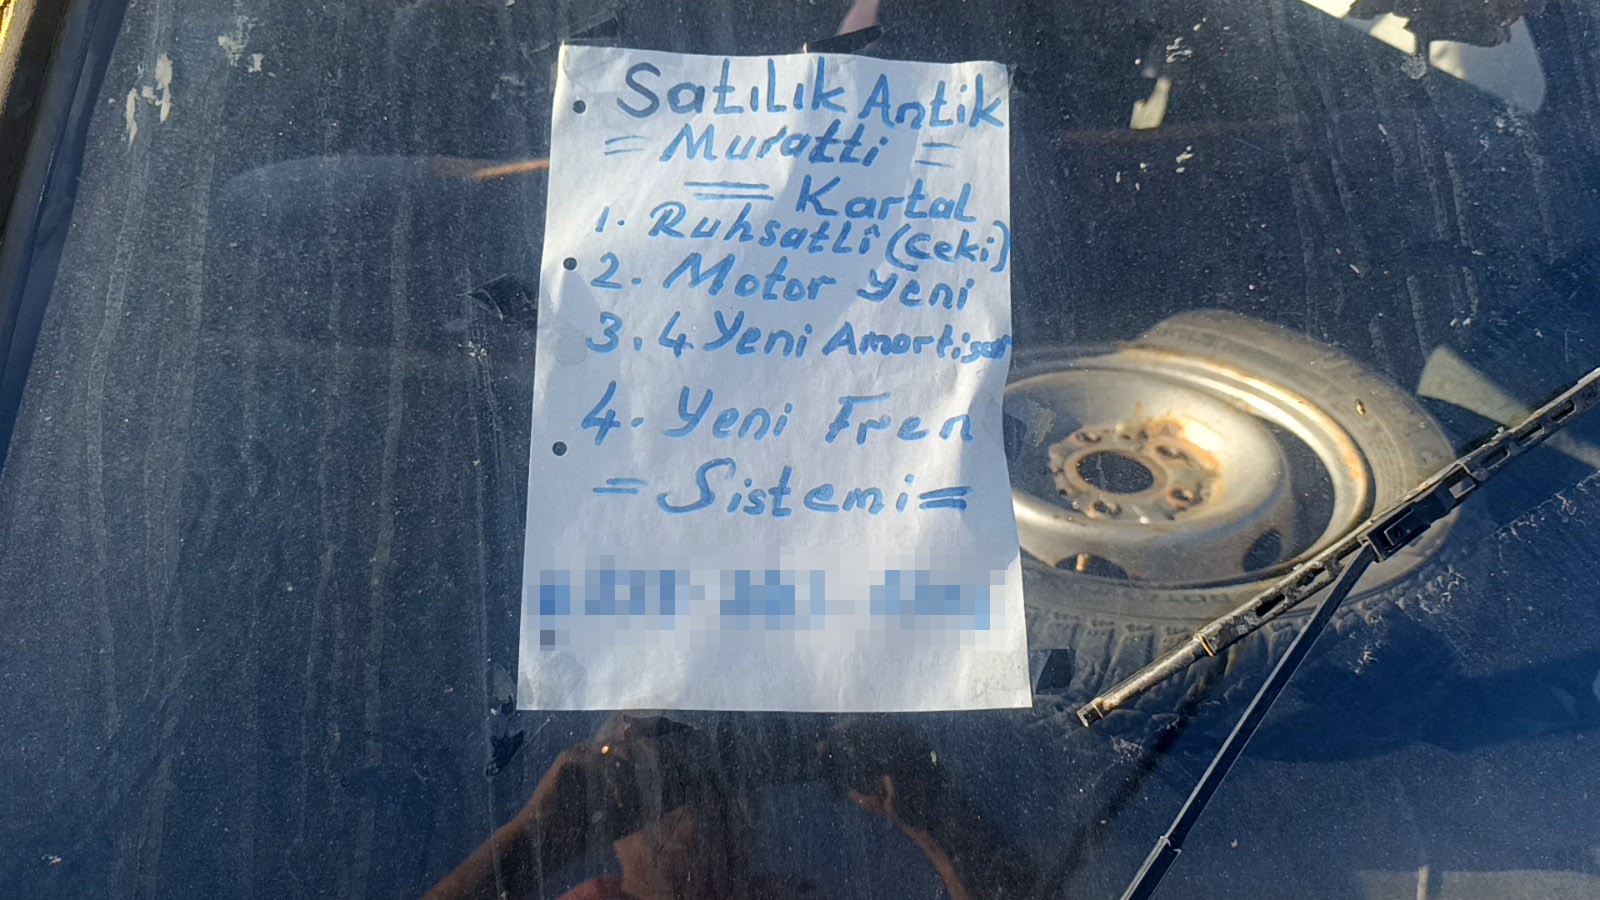 Satılık Antik
= Muratti =
= Kartal
1. Ruhsatlî (Çeki)
2. Motor Yeni
3. 4 Yeni Amortisör
4. Yeni Fren
= Sistemi =